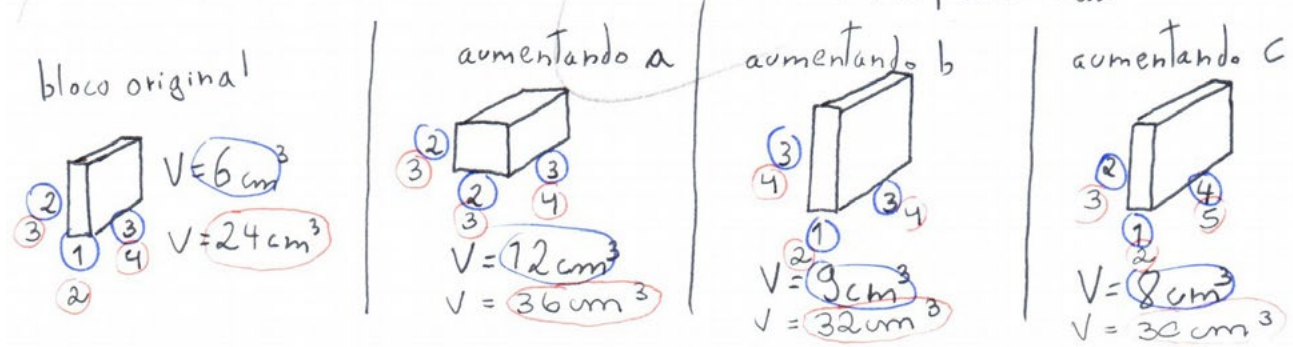 bloco original
2
3
1
2
3
4
V = 6 cm³
V = 24 cm³
aumentando a
2
3
2
3
3
4
V = 12 cm³
V = 36 cm³
aumentando b
3
4
1
2
3
4
V = 9 cm³
V = 32 cm³
aumentando c
2
3
1
2
4
5
V = 8 cm³
V = 30 cm³